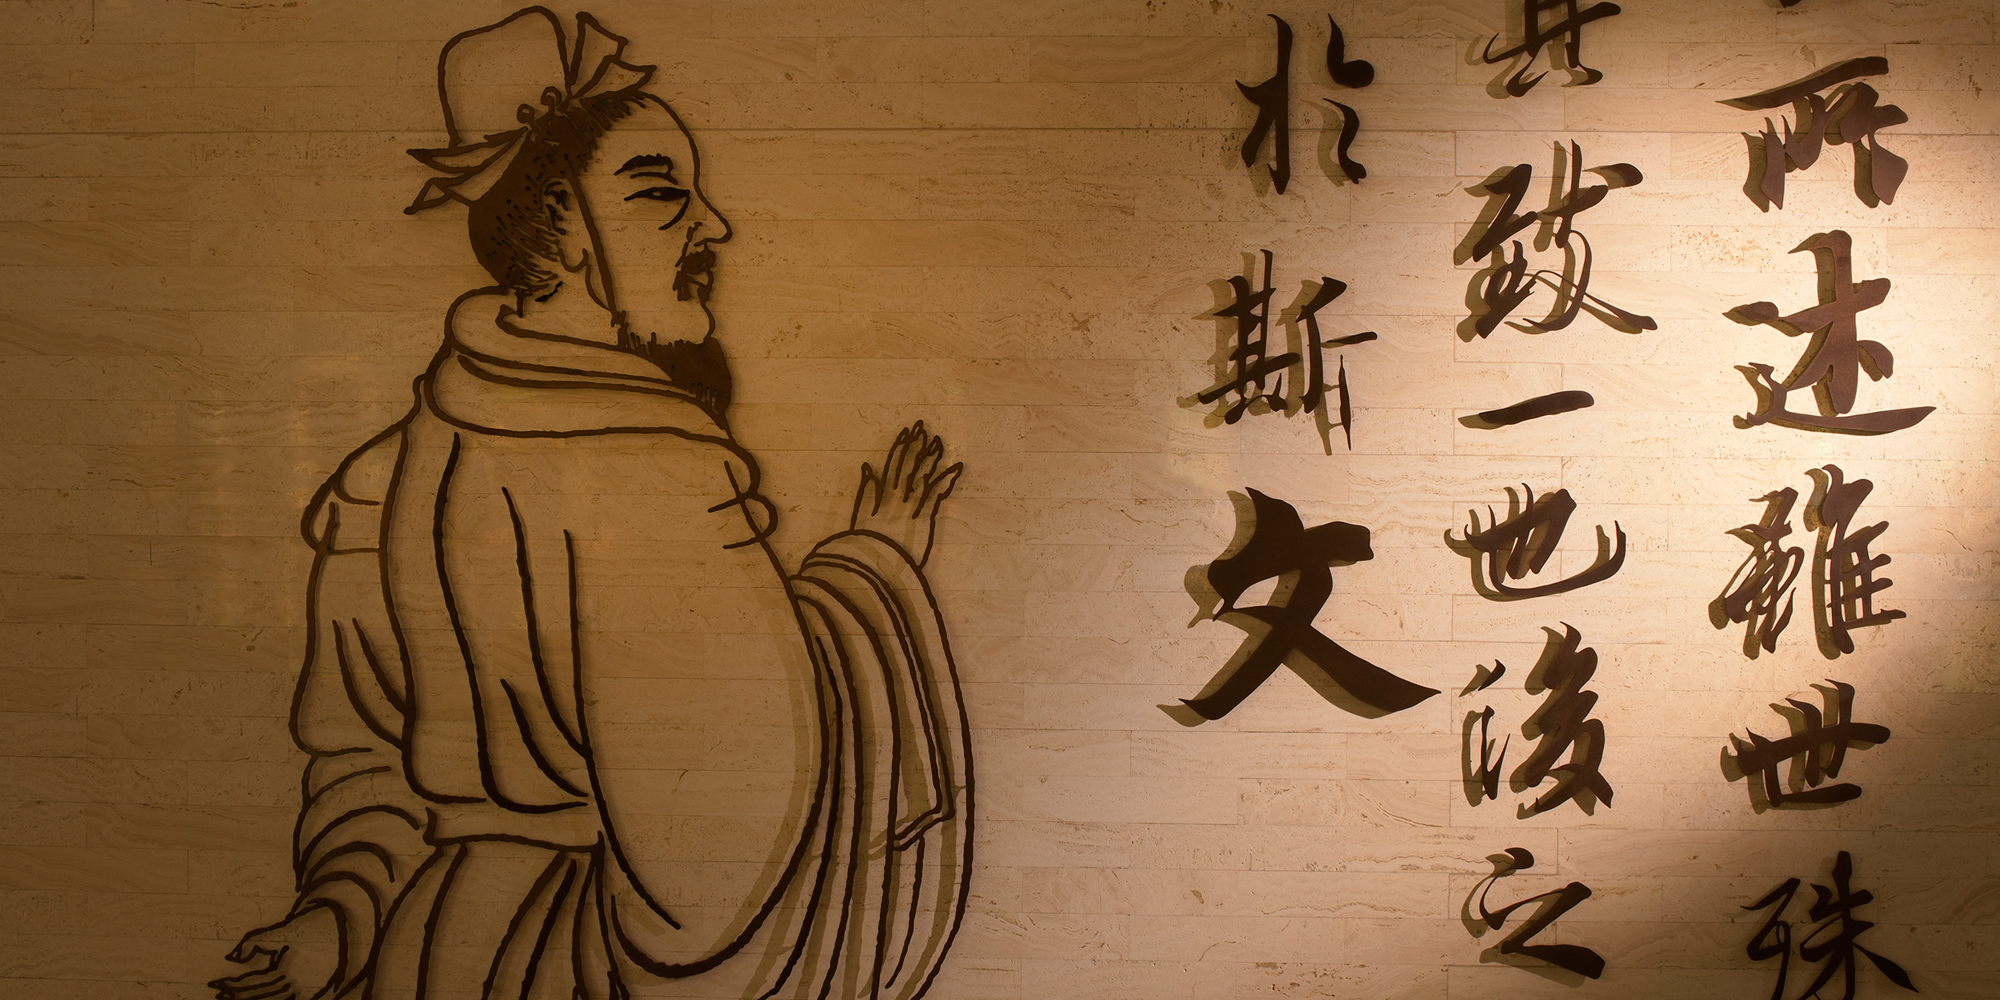 所述雖世殊
其致一也後之
於斯文